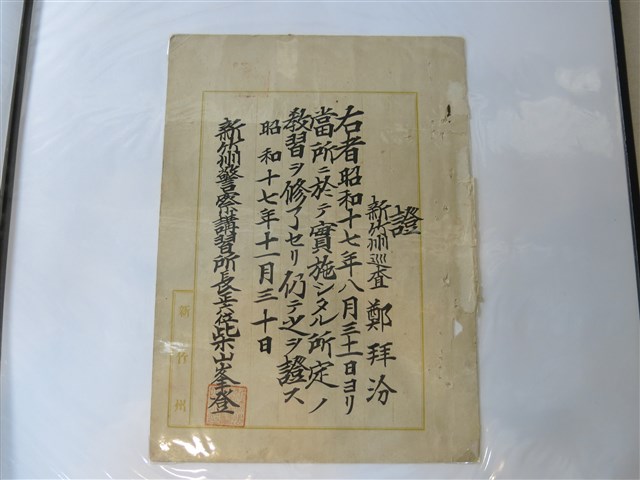 證
新竹州巡査 鄭拜汾
右者昭和十七年八月三十一日ヨリ
當所ニ於テ實施シタル所定ノ
教習ヲ修了セリ仍テ之ヲ證ス
昭和十七年十一月三十日
新竹州警察講習所長正六位柴山峯登
新竹州